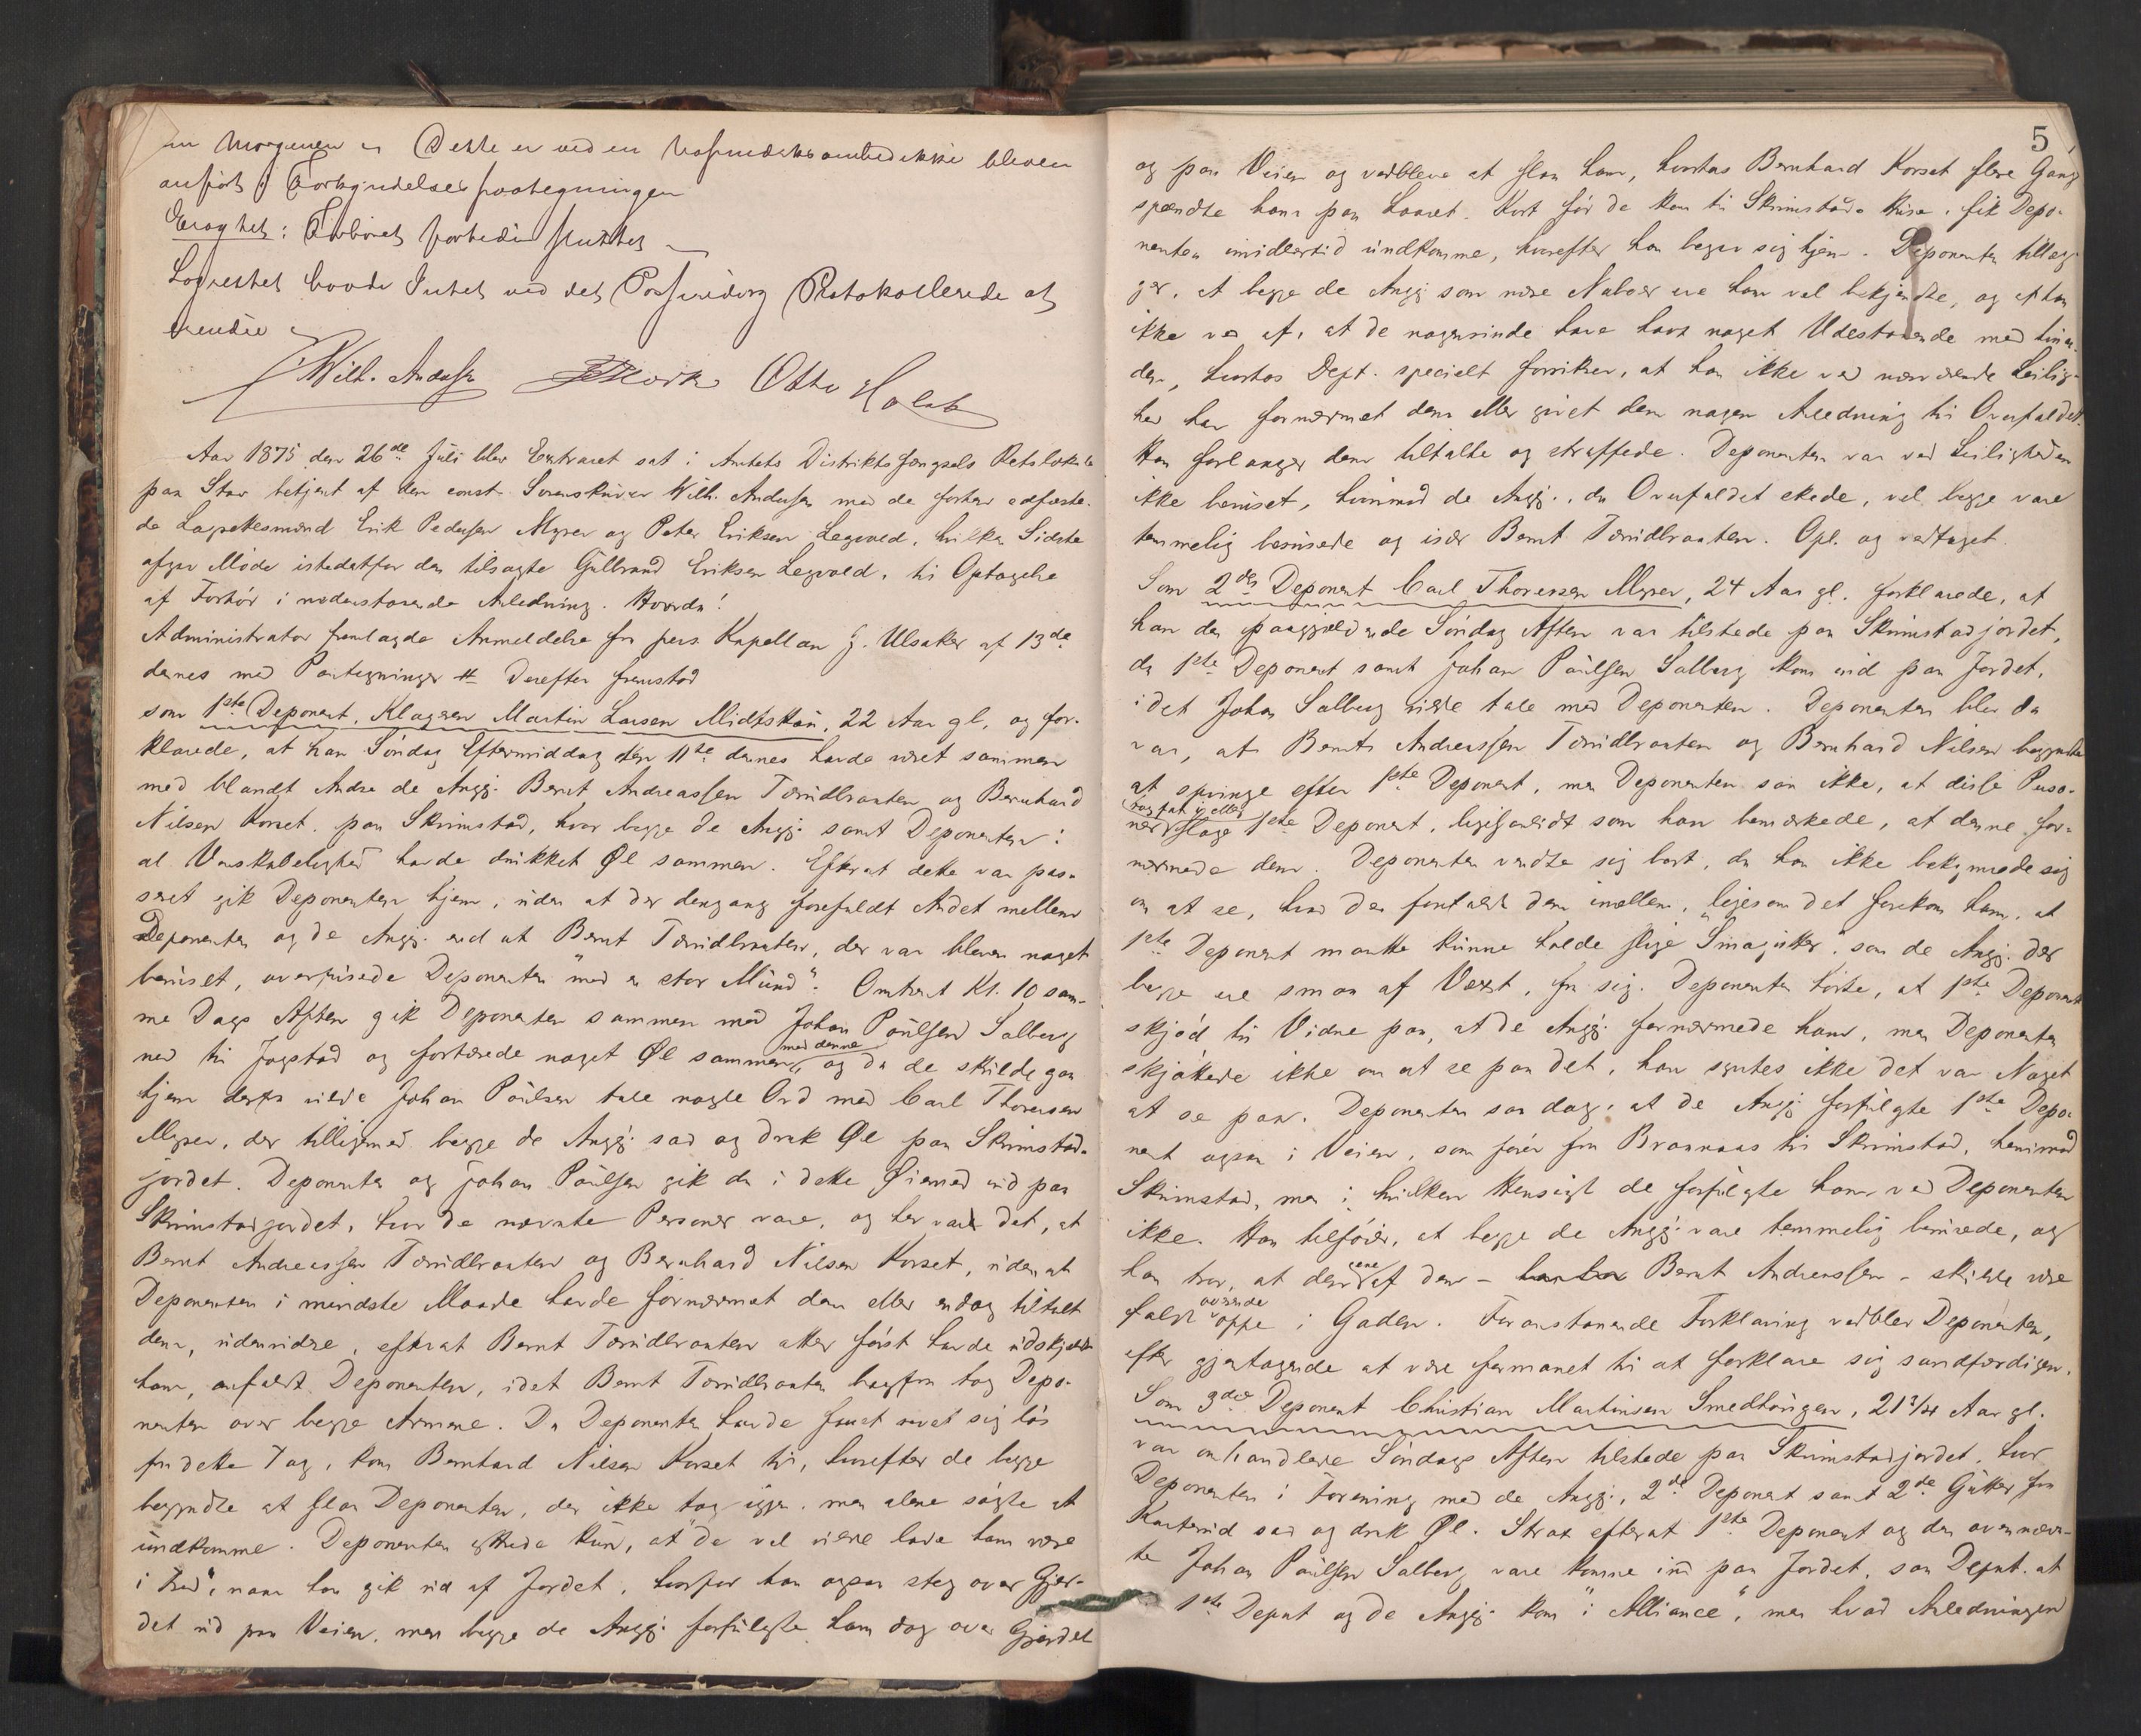 om Morgenen. Dette er ved en ikke bleven
anført i
Eragtet: Forhøret forbedre sluttet
Lagrettet havde Intet ved det Passerede Protokollerede at
erindre
Wilh. Andersen Otto Holst
Aar 1875 den 26de Juli blev Extraret sat i Amtets Distriktsfængsels Retslokale
paa Stav betjent af den const. Sorenskriver Wilh. Andersen med de forhen edfæste-
de Lagrettesmænd Erik Pedersen Myrer og Peter Eriksen Legvold, hvilken Sidste
afgav Møde istedetfor den tilsagte Gulbrand Eriksen Legvold, til Optagelse
af Forhør i nedenstaaende Anledning. Hvorda!
Administrator fremlagde Anmeldelse fra pers. Kapellan J. Ulsaker af 13de
dennes med Paategninger # Derefter fremstod
som 1ste Deponent, Klageren Martin Larsen Midtskau, 22 Aar gl. og for-
klarede, at han Søndag Eftermiddag den 11te dennes havde været sammen
med blandt Andre de Angj. Bernt Andreassen Tærudbraaten og Bernhard
Nilsen Korset paa Skrimstad, hvor begge de Angj. samt Deponenten i
al Venskabelighed havde drukket Øl sammen. Efterat dette var pas-
seret gik Deponenten hjem, uden at der dengang forefaldt Andet mellem
Deponenten og de Angj. end at Bernt Tærudbraaten, der var bleven noget
beruset, overfusede Deponenten "med en stor Mund". Omtrent Kl. 10 sam-
me Dags Aften gik Deponenten sammen med Johan Poulsen Salberg
ned til Jogstad og fortærede noget Øl sammen med denne, og da de skulde gaa
hjem derfra vilde Johan Poulsen tale nogle Ord med Carl Thoresen
Myrer, der tilligemed begge de Angj. sad og drak Øl paa Skrimstad-
jordet. Deponenten og Johan Poulsen gik da i dette Øiemed ind paa
Skrimstadjordet, hvor de nævnte Personer vare, og her var det, at
Bernt Andreassen Tærudbraaten og Bernhard Nilsen Korset, uden at
Deponenten i mindste Maade havde fornærmet dem eller endog tiltalt
dem, udenvidre, efterat Bernt Tærudbraaten atter først havde udskjeldt
ham, anfaldt Deponenten, idet Bernt Tærudbraaten bagfra tog Depo-
nenten over begge Armene. Da Deponenten havde faaet revet sig løs
fra dette Tag, kom Bernhard Nilsen Korset til, hvorefter de begge
begyndte at slaa Deponenten, der ikke tog igjen, men alene søgte at
undkomme. Deponenten yttrede kun, at "de vel vilde lade ham være
i Fred", naar han gik ud af Jordet, hvorfor han ogsaa steg over Gjer-
det ud paa Veien, men begge de Angj. forfulgte ham dog over Gjerdet
5
og paa Veien og vedbleve at slaa ham, hvorhos Bernhard Korset flere Gange
spændte ham paa Laaret. Kort før de kom til Skrimstads Huse, fik Depo-
nenten imidlertid undkomme, hvorefter han begav sig hjem. Deponenten tillæg-
ger, at begge de Angj. som nære Naboer ere ham vel bekjendte, og at han
ikke ved af, at de nogensinde have havt noget Udestaaende med hinan-
den, hvorhos Dept. specielt forsikrer, at han ikke ved nærværende Leilig-
hed har fornærmet dem eller givet dem nogen Anledning til Overfaldet.
Han forlanger dem tiltalte og straffede. Deponenten var ved Leiligheden
ikke beruset, hvorimod de Angj., da Overfaldet skede, vel begge vare
temmelig berusede og især Bernt Tærudbraaten. Opl. og vedtaget.
Som 2den Deponent Carl Thoresen Myrer, 24 Aar gl. forklarede, at
han den paagjældende Søndag Aften var tilstede paa Skrimstadjordet,
da 1ste Deponent samt Johan Poulsen Salberg kom ind paa Jordet,
idet Johan Salberg vilde tale med Deponenten. Deponenten blev da
var, at Bernt Andreassen Tærudbraaten og Bernhard Nilsen begyndte
at springe efter 1ste Deponent, men Deponenten saa ikke, at disse Perso-
ner tog fat i eller sloge 1ste Deponent, ligesaalidt som han bemærkede, at denne for-
nærmede dem. Deponenten vendte sig bort, da han ikke bekymrede sig
om at se, hvad der forefaldt dem imellem, ligesom det forekom ham, at
1ste Deponent maatte kunne holde slige "Smagutter", som de Angj. der
begge ere smaa af Væxt, fra sig. Deponenten hørte, at 1ste Deponent
skjød til Vidne paa, at de Angj. fornærmede ham, men Deponenten
skjøttede ikke om at se paa det, han syntes ikke det var Noget
at se paa. Deponenten saa dog, at de Angj. forfulgte 1ste Depo-
nent ogsaa i Veien, som fører fra Braanaas til Skrimstad, henimod
Skrimstad, men i hvilken Hensigt de forfulgte ham ved Deponenten
ikke. Han tilføier, at begge de Angj. vare temmelig berusede, og
han tror, at den ene af dem - Bernt Andreassen - skulde være
faldt overende oppe i Gaden. Foranstaaende Forklaring vedblev Deponenten,
efter gjentagende at være formanet til at forklare sig sandfærdigen.
Som 3die Deponent Christian Martinsen Smedhaugen, 21 3/4 Aar gl.
var omhandlede Søndags Aften tilstede paa Skrimstadjordet, hvor
Deponenten i Forening med de Angj., 2den Deponent samt 2de Gutter fra
sad og drak Øl. Strax efterat 1ste Deponent og den ovennævn-
te Johan Poulsen Salberg vare komne ind paa Jordet, saa Depnt. at
1ste Depnt og de Angj. kom i "Alliance", men hvad Anledningen